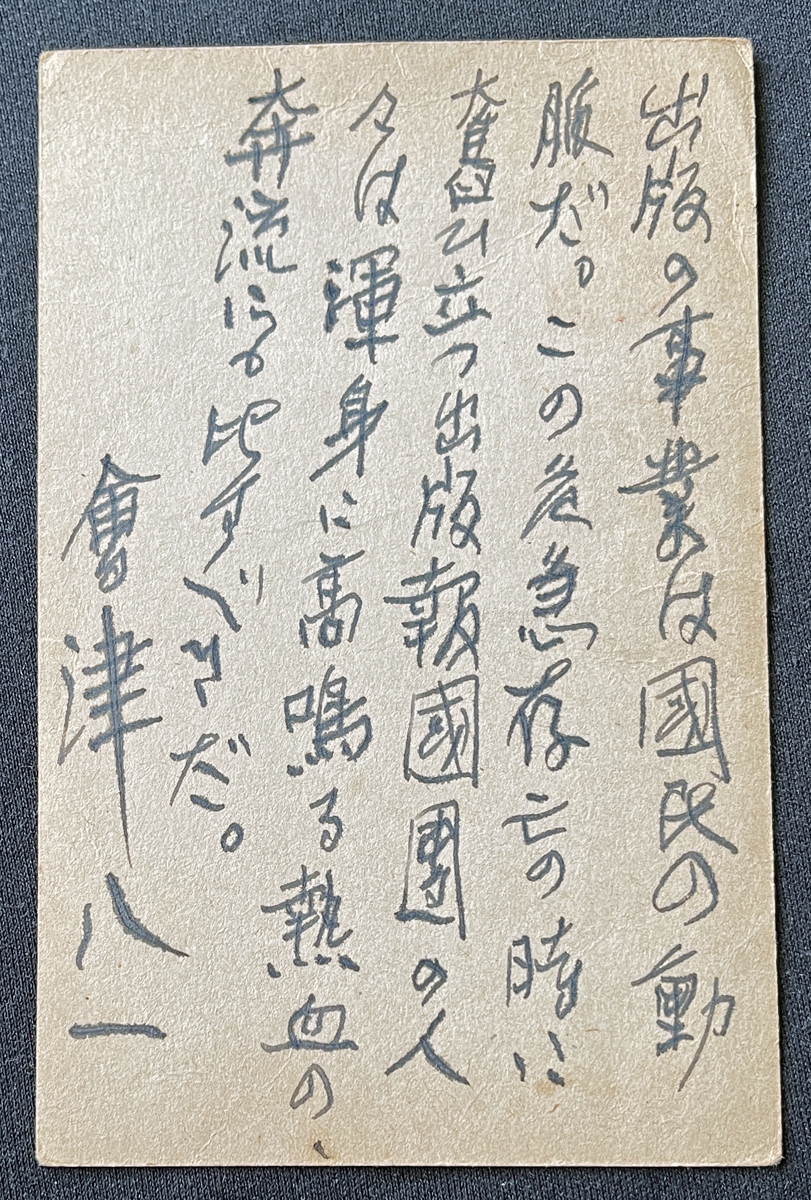 出版の事業は國民の動
脈だ。この危急存亡の時に
奮ひ立つ出版報國團の人
々は渾身に高鳴る熱血の、
奔流にも比すべきだ。
會津八一